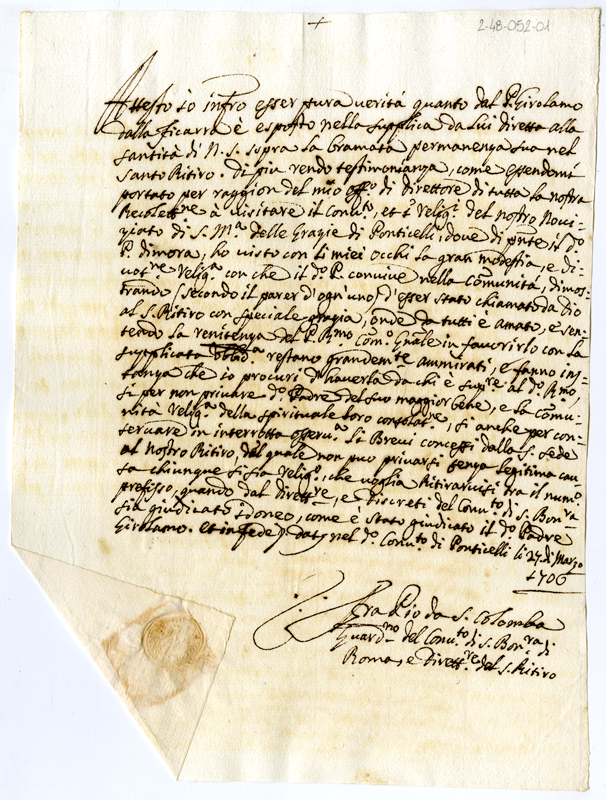 +
2-48-052-01
Attesto io infro esser pura verità quanto dal P. Girolamo
dalla Ficarra è esposto nella supplica da lui diretta alla
santità di N. S. sopra la bramata permanenza sua nel
santo Ritiro. Di più rendo testimonianza, come essendomi
portato per raggion del mio offo di Direttore di tutta la nostra
à visitare il Convto, et i Religi del nostro Novi-
ziato di S. Ma delle Grazie di Ponticelli, dove di pnte il do
P. dimora, ho visto con li miei occhi la gran modestia, e di-
votne religa con che il do P. convive nella Comunità, dimos-
trando (secondo il parer d'ogn'uno) d'esser stato chiamato da Dio
al S. Ritiro con speciale grazia, onde da tutti è amato, e sen-
tendo la renitenza del P. Rmo Como Gnale in favorirlo con la
supplicata restano grandemte ammirati, e fanno ins-
tanza che io procuri d'haverla da chi è supre al do Rmo,
sì per non privare do Padre del suo maggior bene, e la Comu-
nità religa della spirituale loro consolatne, sì anche per con-
servare in interrotta osserva li Brevi concessi dalla S. Sede
al nostro Ritiro, dal quale non può privarsi senza legitima cau-
sa chiunque si sia Religo, che voglia Ritirarvisi tra il numo
prefisso, quando dal Direttre, e Discreti del Convto di S. Bonra
sia giudicato idoneo, come è stato giudicato il do Padre
Girolamo. Et in fede dat nel do Convto di Ponticelli li 27 di Marzo
1706
Fra Pio da S. Colomba
Guardno del Convto di S. Bonra di
Roma, e Direttre del S. Ritiro